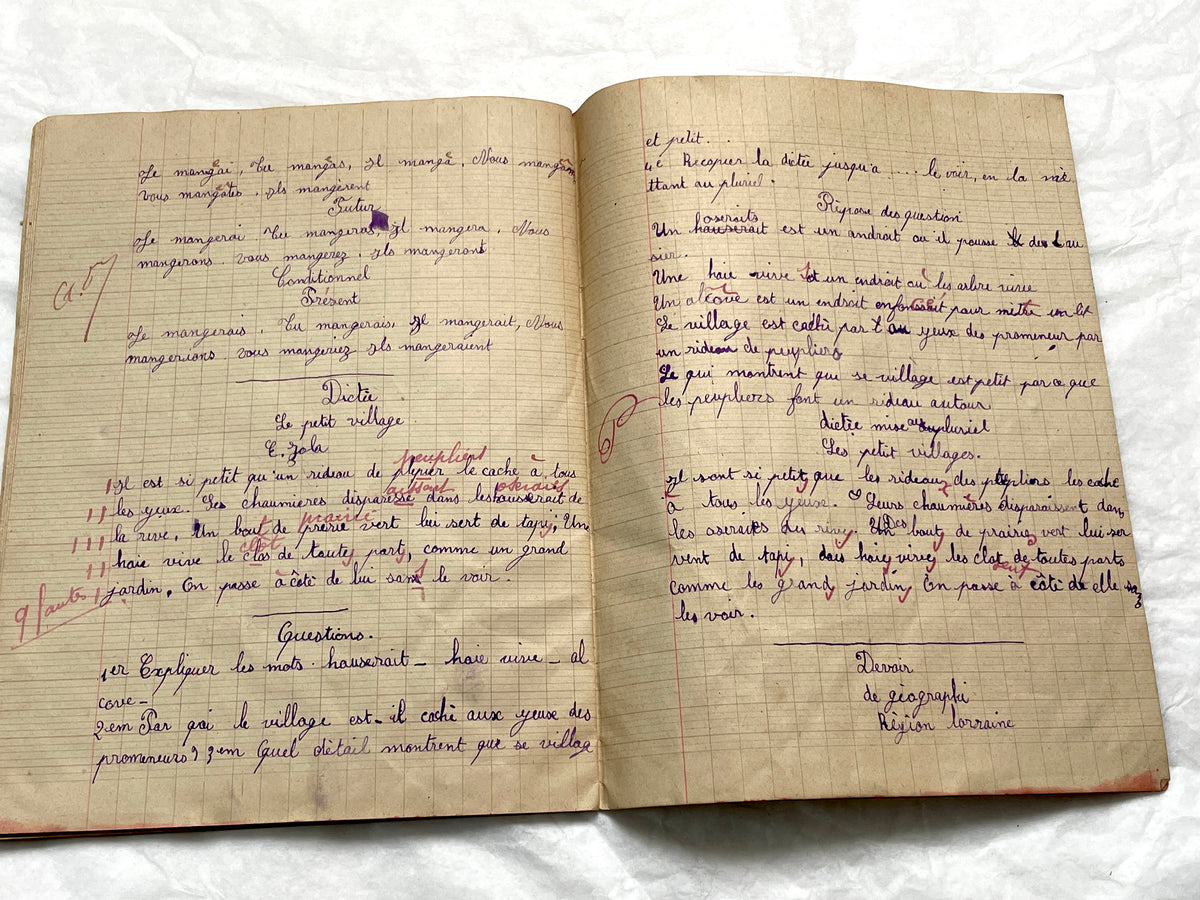 Je mangai, Tu mangas, Il manga, Nous mangam
vous mangates, ils mangèrent
Futur
Je mangerai Tu mangeras, Il mangera, Nous
mangerons vous mangerez, ils mangeront
Conditionnel
Présent
Je mangerais, Tu mangerais, Il mangerait, Nous
mangerions vous mangeriez ils mangeraient
Dictée
Le petit village
E. Zola
peupliers
Il est si petit qu'un rideau de le cache à tous
les yeux. Les chaumières disparesse dans les hauserait de
la rive, Un bout de prérie vert lui sert de tapi, Une
prairie
haie vive le clos de toute part, comme un grand
9 fautes
jardin. On passe à côté de lui sans le voir.
Questions.
1er Expliquer les mots. hauserait _ haie vive _ al
cove _
2em Par qoi le village est-il caché aux yeux des
promeneurs? 3em Quel détail montrent que se village
et petit.
4é Recopier la dictée jusqu'a .... le voir, en la mé
ttant au pluriel.
Répose des question
oseraits
Un hauserait est un andrait ou il pousse de au
sier.
Une haie vive un endroit ou les arbre vivie
Un alcove est un endroit pour mettre un lit
Le village est caché par yeux des promeneur par
un rideau de peupliers
Ce qui montrent que se village est petit par ce que
les peupliers font un rideau autour
dictée mise au pluriel
Les petit villages.
Il sont si petit que les rideau des peupliers les caché
à tous les yeux. Leurs chaumières disparaissent dans
les oseraits du rive, Des bout de prairie vert lui ser
vent de tapi, des haie vive les clot de toutes parts
comme les grand jardin, On passe à côté de elle
les voir.
Devoir
de géographi
Région lorraine